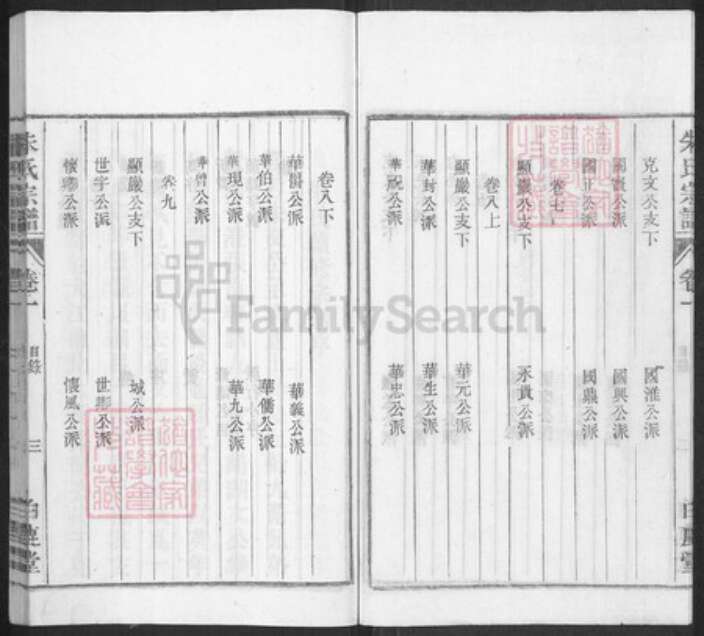 朱氏宗譜 卷一
克文公支下 國淮公派
國賓公派 國興公派
國正公派 國鼎公派
卷七
顯嚴公支下 永貴公派
卷八上
顯嚴公支下 華元公派
華封公派 華生公派
華祝公派 華忠公派
卷八下
華傑公派 華義公派
華伯公派 華儒公派
華現公派 華九公派
華曾公派
卷九
顯嚴公支下 城公派
世宇公派 世彩公派
懷瑾公派 懷風公派
朱氏宗譜 卷一 目錄 三 白鹿堂
FamilySearch